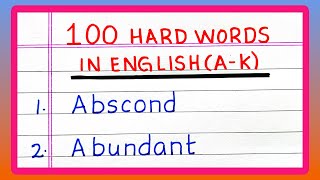 100 HARD WORDS
IN ENGLISH (A-K)
1. Abscond
2. Abundant